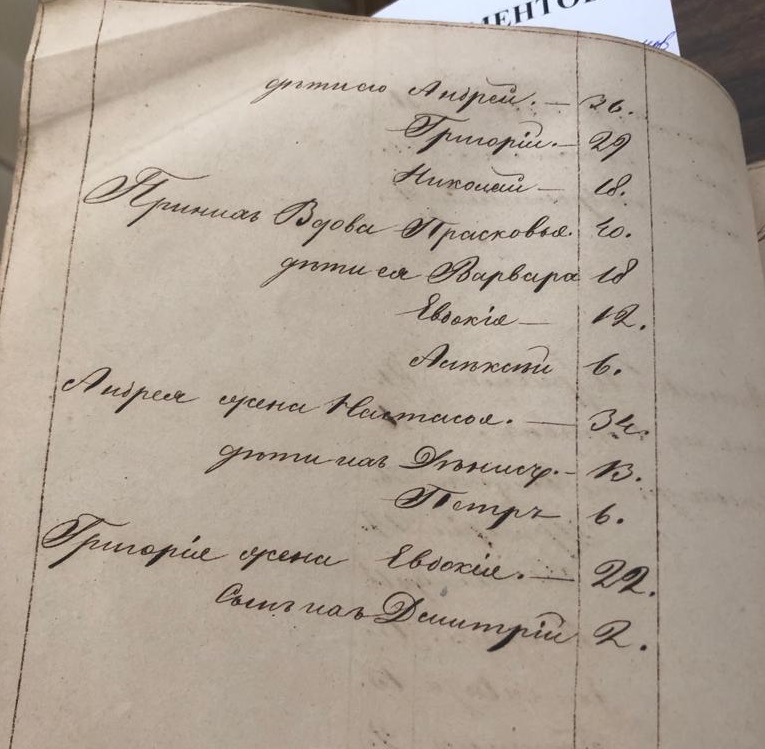 МЕНТОВ
дѣти его Андрей. — 36.
Григорій. — 29
Николай — 18.
При нихъ Вдова Прасковья. 40.
дѣти ея Варвара 18
Евдокія — 12.
Алѣксѣй 6.
Андрея жена Настасья. — 34.
дѣти ихъ Дѣнисъ. — 13.
Петръ 6.
Григорія жена Евдокія. — 22.
Сынъ ихъ Дмитрій 2.